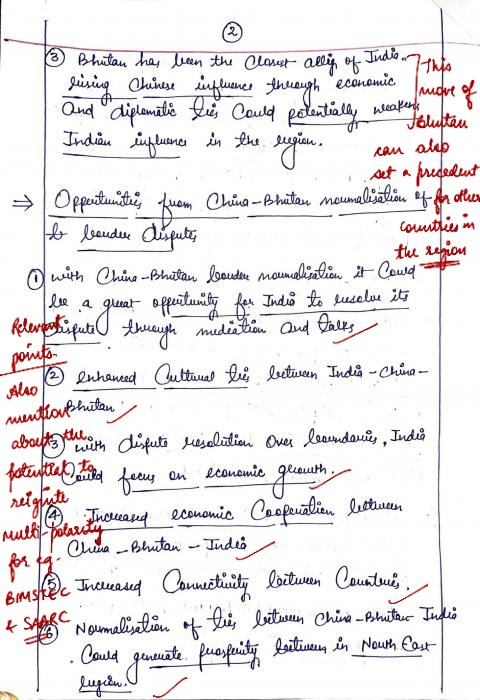 2
③ Bhutan has been the closest ally of India.
rising Chinese influence through economic
And diplomatic ties Could potentially weaken
Indian influence in the region.
This
move of
Bhutan
can also
set a precedent
for other
countries in
the region
⇒ Oppertunities from China-Bhutan noumalisation of
& bouder disputes
① with China-Bhutan bouder noumalisation it Could
be a great oppertunity for India to resolve its
dispute through mediation And talks
② enhanced Cultural ties between India-China-
Bhutan
③ with dispute resolution over boundaries, India
Could focus on economic growth.
④ Increased economic Cooperation between
China-Bhutan-India
⑤ Increased Connectivity between Countries.
⑥ Noumalisation of ties between China-Bhutan-India
. Could generate prosperity between in North East
region.
Relevant
points.
Also
mention
about the
potential to
reignite
multi-polarity
for eg.
BIMSTEC
& SAARC